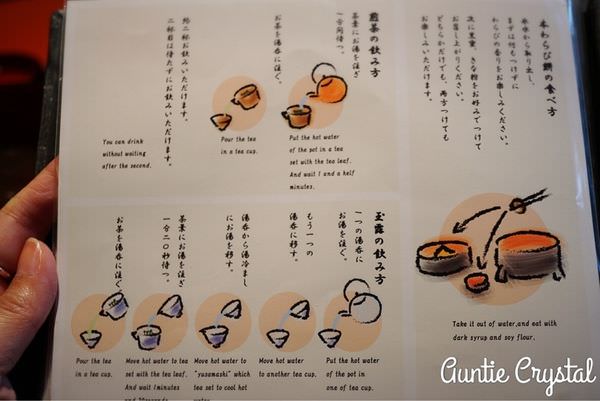 本わらび餅の食べ方
氷水から取り出し、
まずは何もつけずに
わらびの香りをお楽しみください。
次に黒蜜、きな粉をお好みでつけて
お召し上がりください。
どちらかだけでも、両方つけても
お楽しみいただけます。
Take it out of water,and eat with
dark syrup and soy flour.
煎茶の飲み方
茶葉にお湯を注ぎ
一分間待つ。
お茶を湯呑に注ぐ。
Put the hot water
of the pot in a tea
set with the tea leaf.
And wait 1 and a helf
minutes.
Pour the tea
in a tea cup.
約二杯お飲みいただけます。
二杯目は待たずにお飲みいただけます。
You can drink
without waiting
after the second.
玉露の飲み方
一つの湯呑に
お湯を注ぐ。
もう一つの
湯呑に移す。
湯呑から湯冷まし
にお湯を移す。
茶葉にお湯を注ぎ
一分二〇秒待つ。
お茶を湯呑に注ぐ
Put the hot water
of the pot in
one of tea cup.
Move hot water
to another tea cup.
Move hot water to
"yusamashi" which
tea set to cool hot
water.
Move hot water to tea
set with the tea leaf.
And wait 1minutes
Pour the tea
in a tea cup.
Auntie Crystal